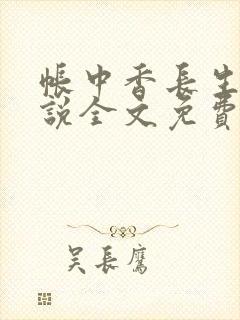 帳中香長生
說全文免費
吴長鷹